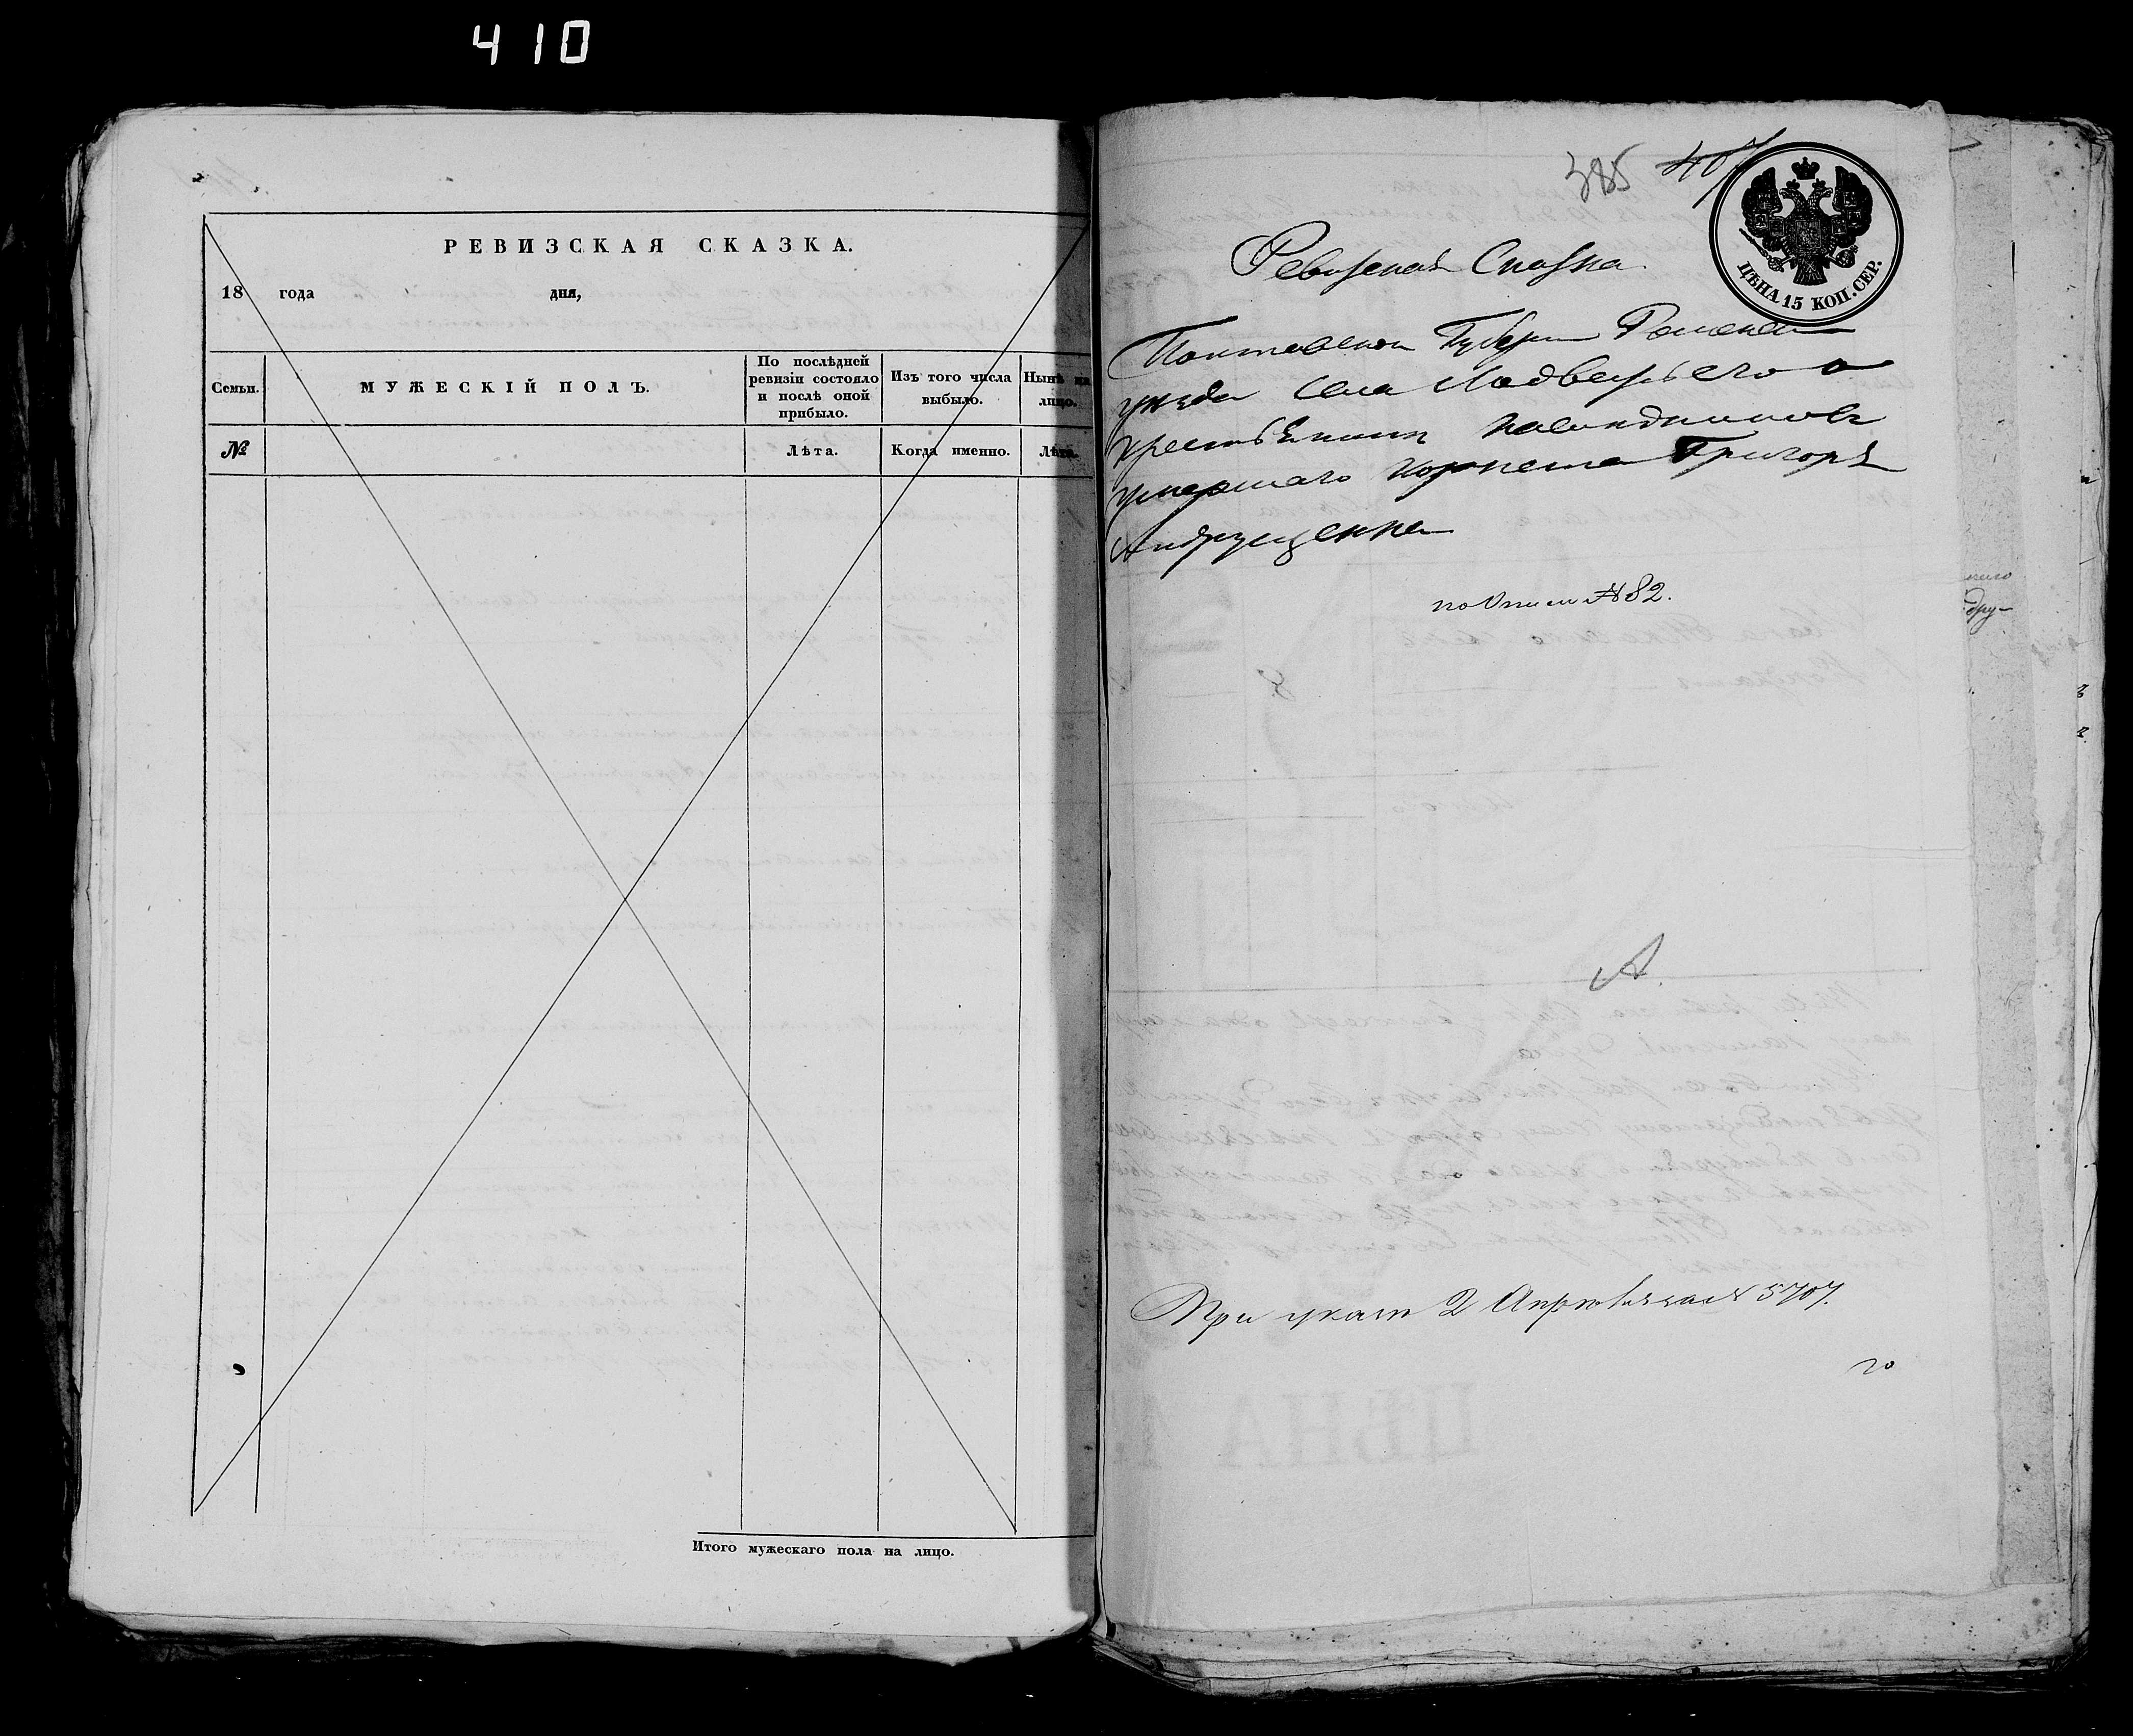 410
РЕВИЗСКАЯ СКАЗКА.
18 года дня,
Семьи.
МУЖЕСКІЙ ПОЛЪ.
По послѣдней ревизіи состояло и послѣ оной прибыло.
Изъ того числа выбыло.
Нынѣ на лицо.
№
Лѣта.
Когда именно.
Лѣта.
Итого мужескаго пола на лицо.
385 407
ЦѢНА 15 КОП. СЕР.
Ревизская Сказка
Полтавской Губерніи Роменскаго
уѣзда села Лодвезьего о
крестьянахъ наслѣдниковъ
умершаго Корнета Григорія
Андрущенка
по Описи № 82.
А
При указѣ 2 Апрѣля за № 5707.